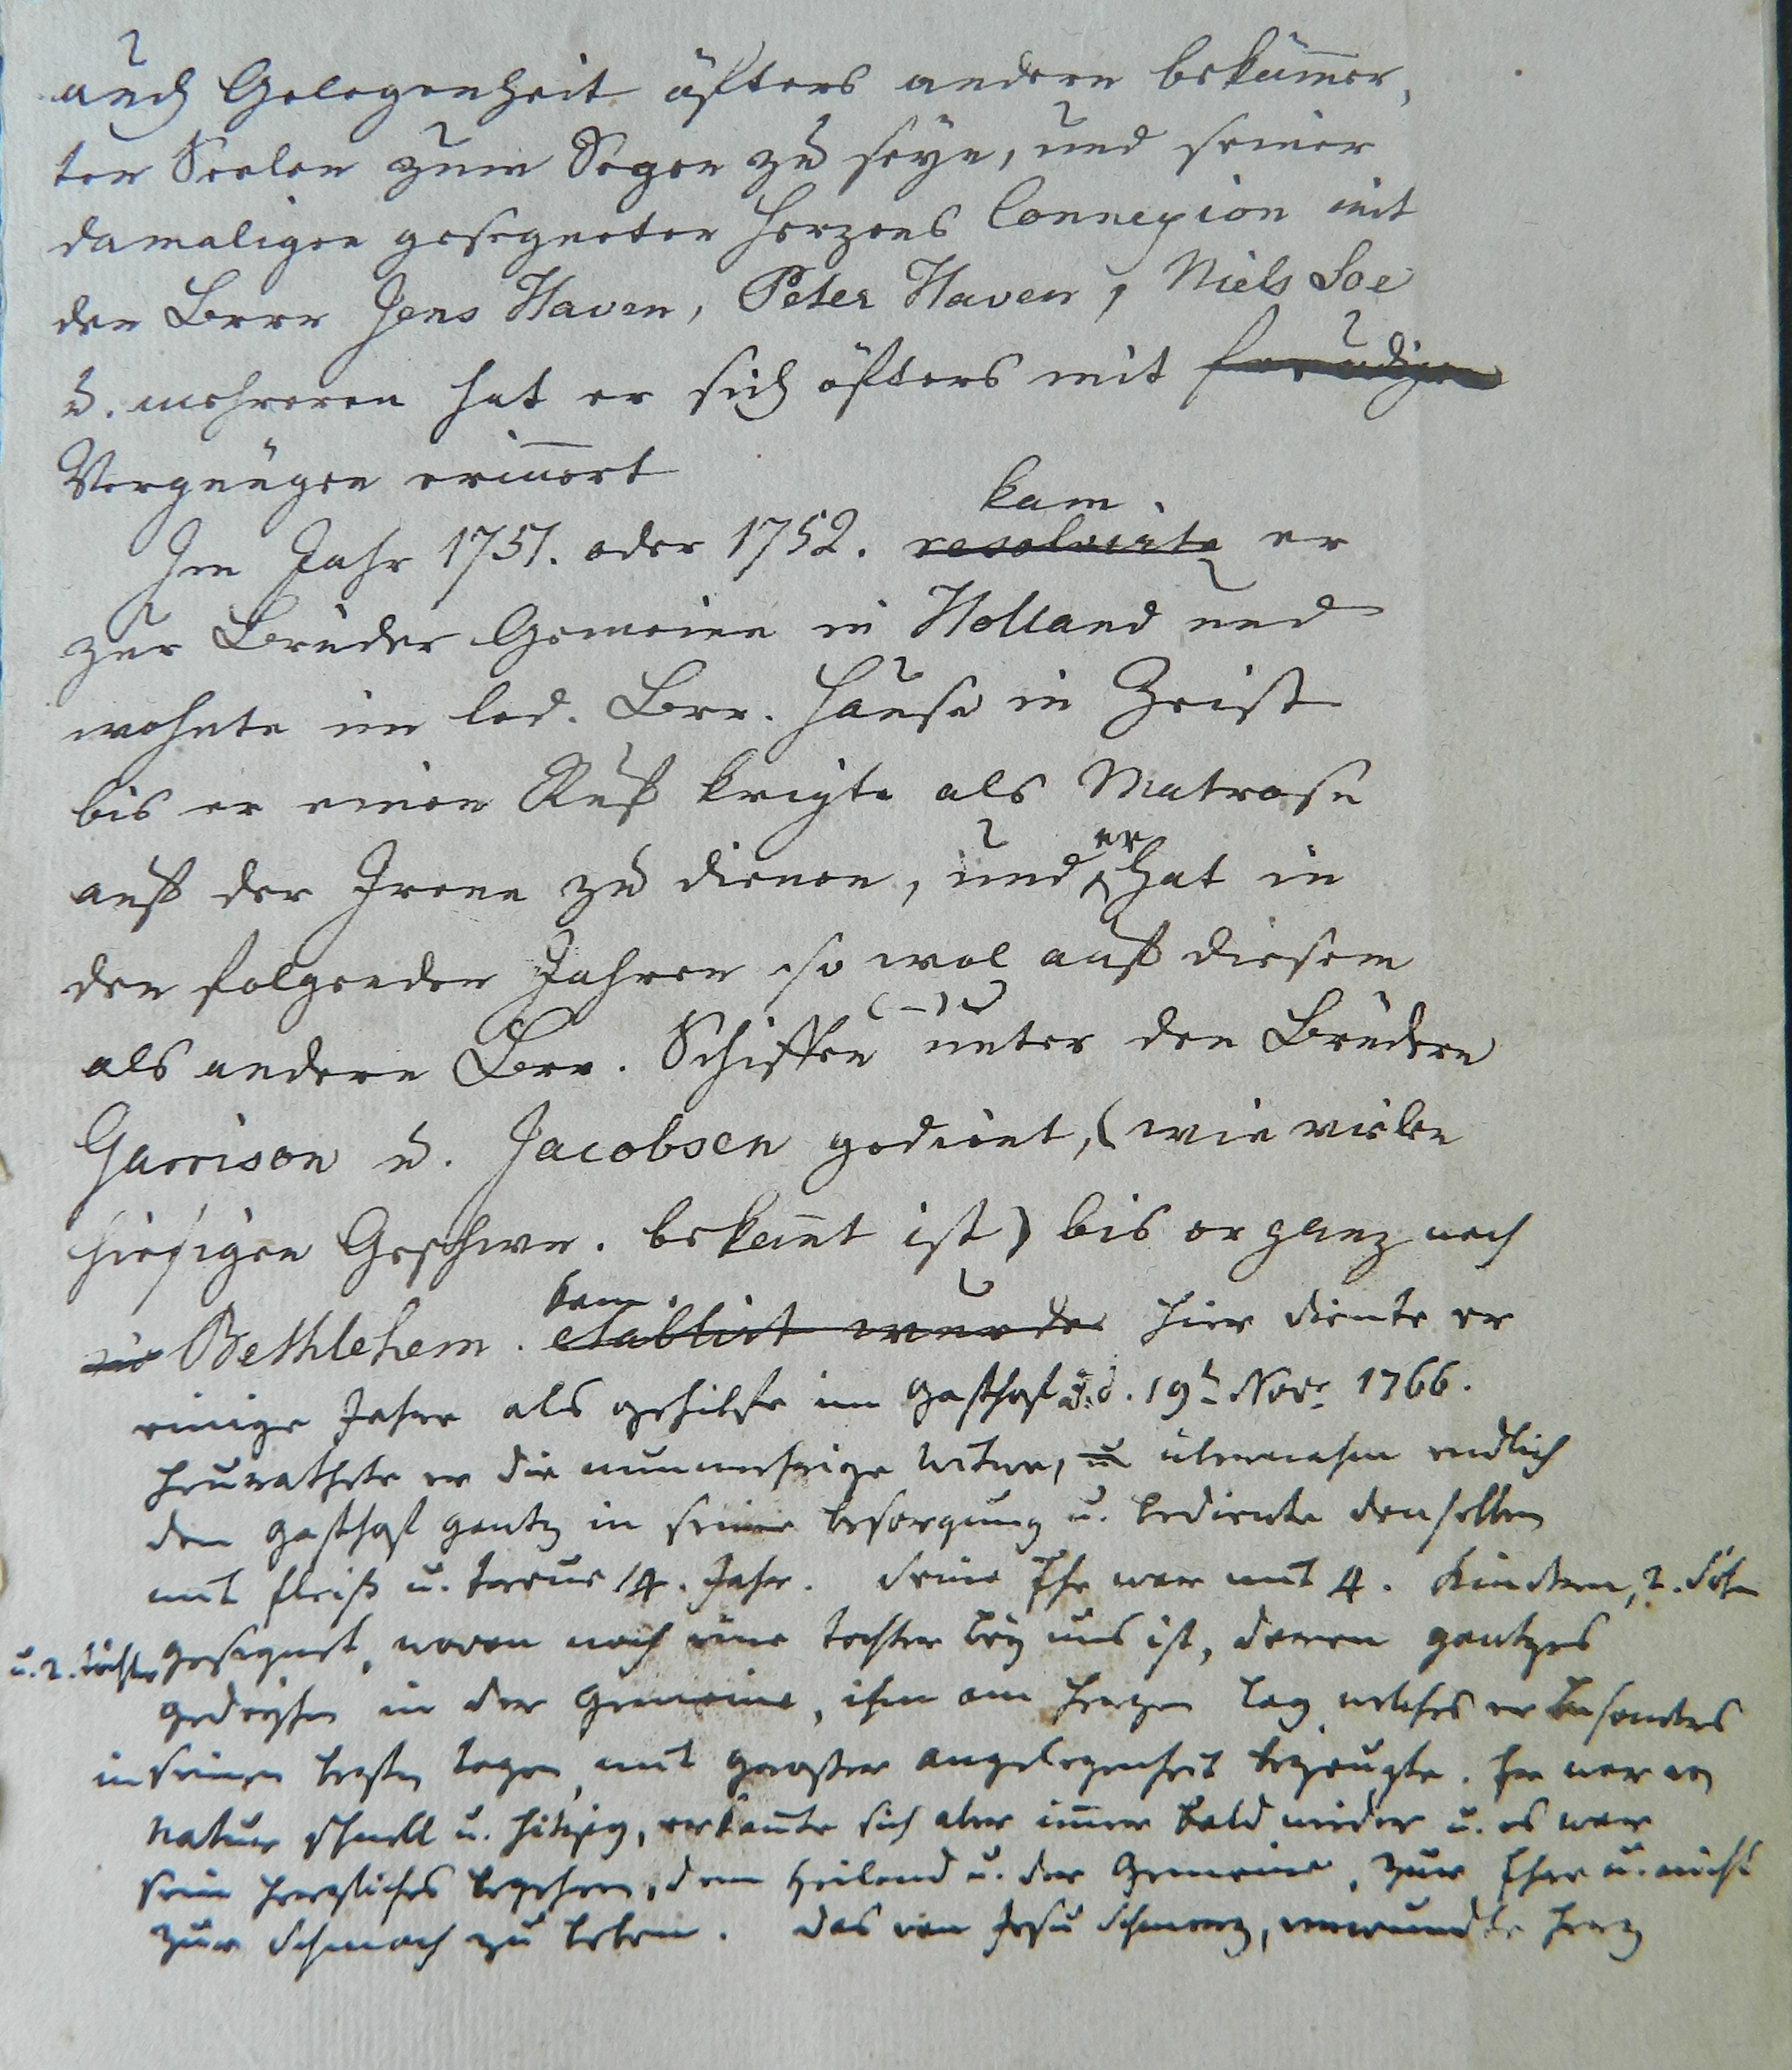 auch Gelegenheit öfters andern bekümer,
ten Seelen zum Segen zu seyn, und seiner
damaligen gesegneten Herzens Connexion mit
den Brrn Jens Haven, Peter Haven, Niels Soe
u. mehreren hat er sich öfters mit freudigen
Vergnügen erinnert
kam.
Im Jahr 1751. oder 1752. resolvirte er
zur Brüder Gemeine in Holland und
wohnte im led. Brr. Hause in Zeist
bis er einen Ruf krigte als Matrose
er
auf der Irene zu dienen, und hat in
den folgenden Jahren so wol auf diesem
als andern Brr. Schiffen unter den Brüdern
Garrison u. Jacobsen gedient, (wie vielen
hiesigen Geschwr. bekant ist) bis er ganz nach
kam.
in Bethlehem. etablirt wurde hier diente er
einige Jahre als gehilfe im Gasthof u. d. 19t Novr 1766.
heurathete er die nunmehrige Witwe, u übernahm endlich
den Gasthof gantz in seine besorgung u. bediente denselben
mit fleiß u. treue 14. Jahr. Seine Ehe war mit 4. Kindern, 2. Söhn
u. 2. töchter gesegnet, wovon noch eine tochter bey uns ist, deren gantzes
gedeyhen in der Gemeine, ihm am Herzen lag welches er besonders
in seinen letzten tagen, mit großer angelegenheit bezeugte. Er war von
Natur schnell u. hitzig, erkante sich aber imer bald wieder u. es war
sein herzliches begehren, dem Heiland u. der Gemeine, zur Ehre u. nicht
zur Schmach zu leben. Das von Jesu Schmerz, verwundte Herz